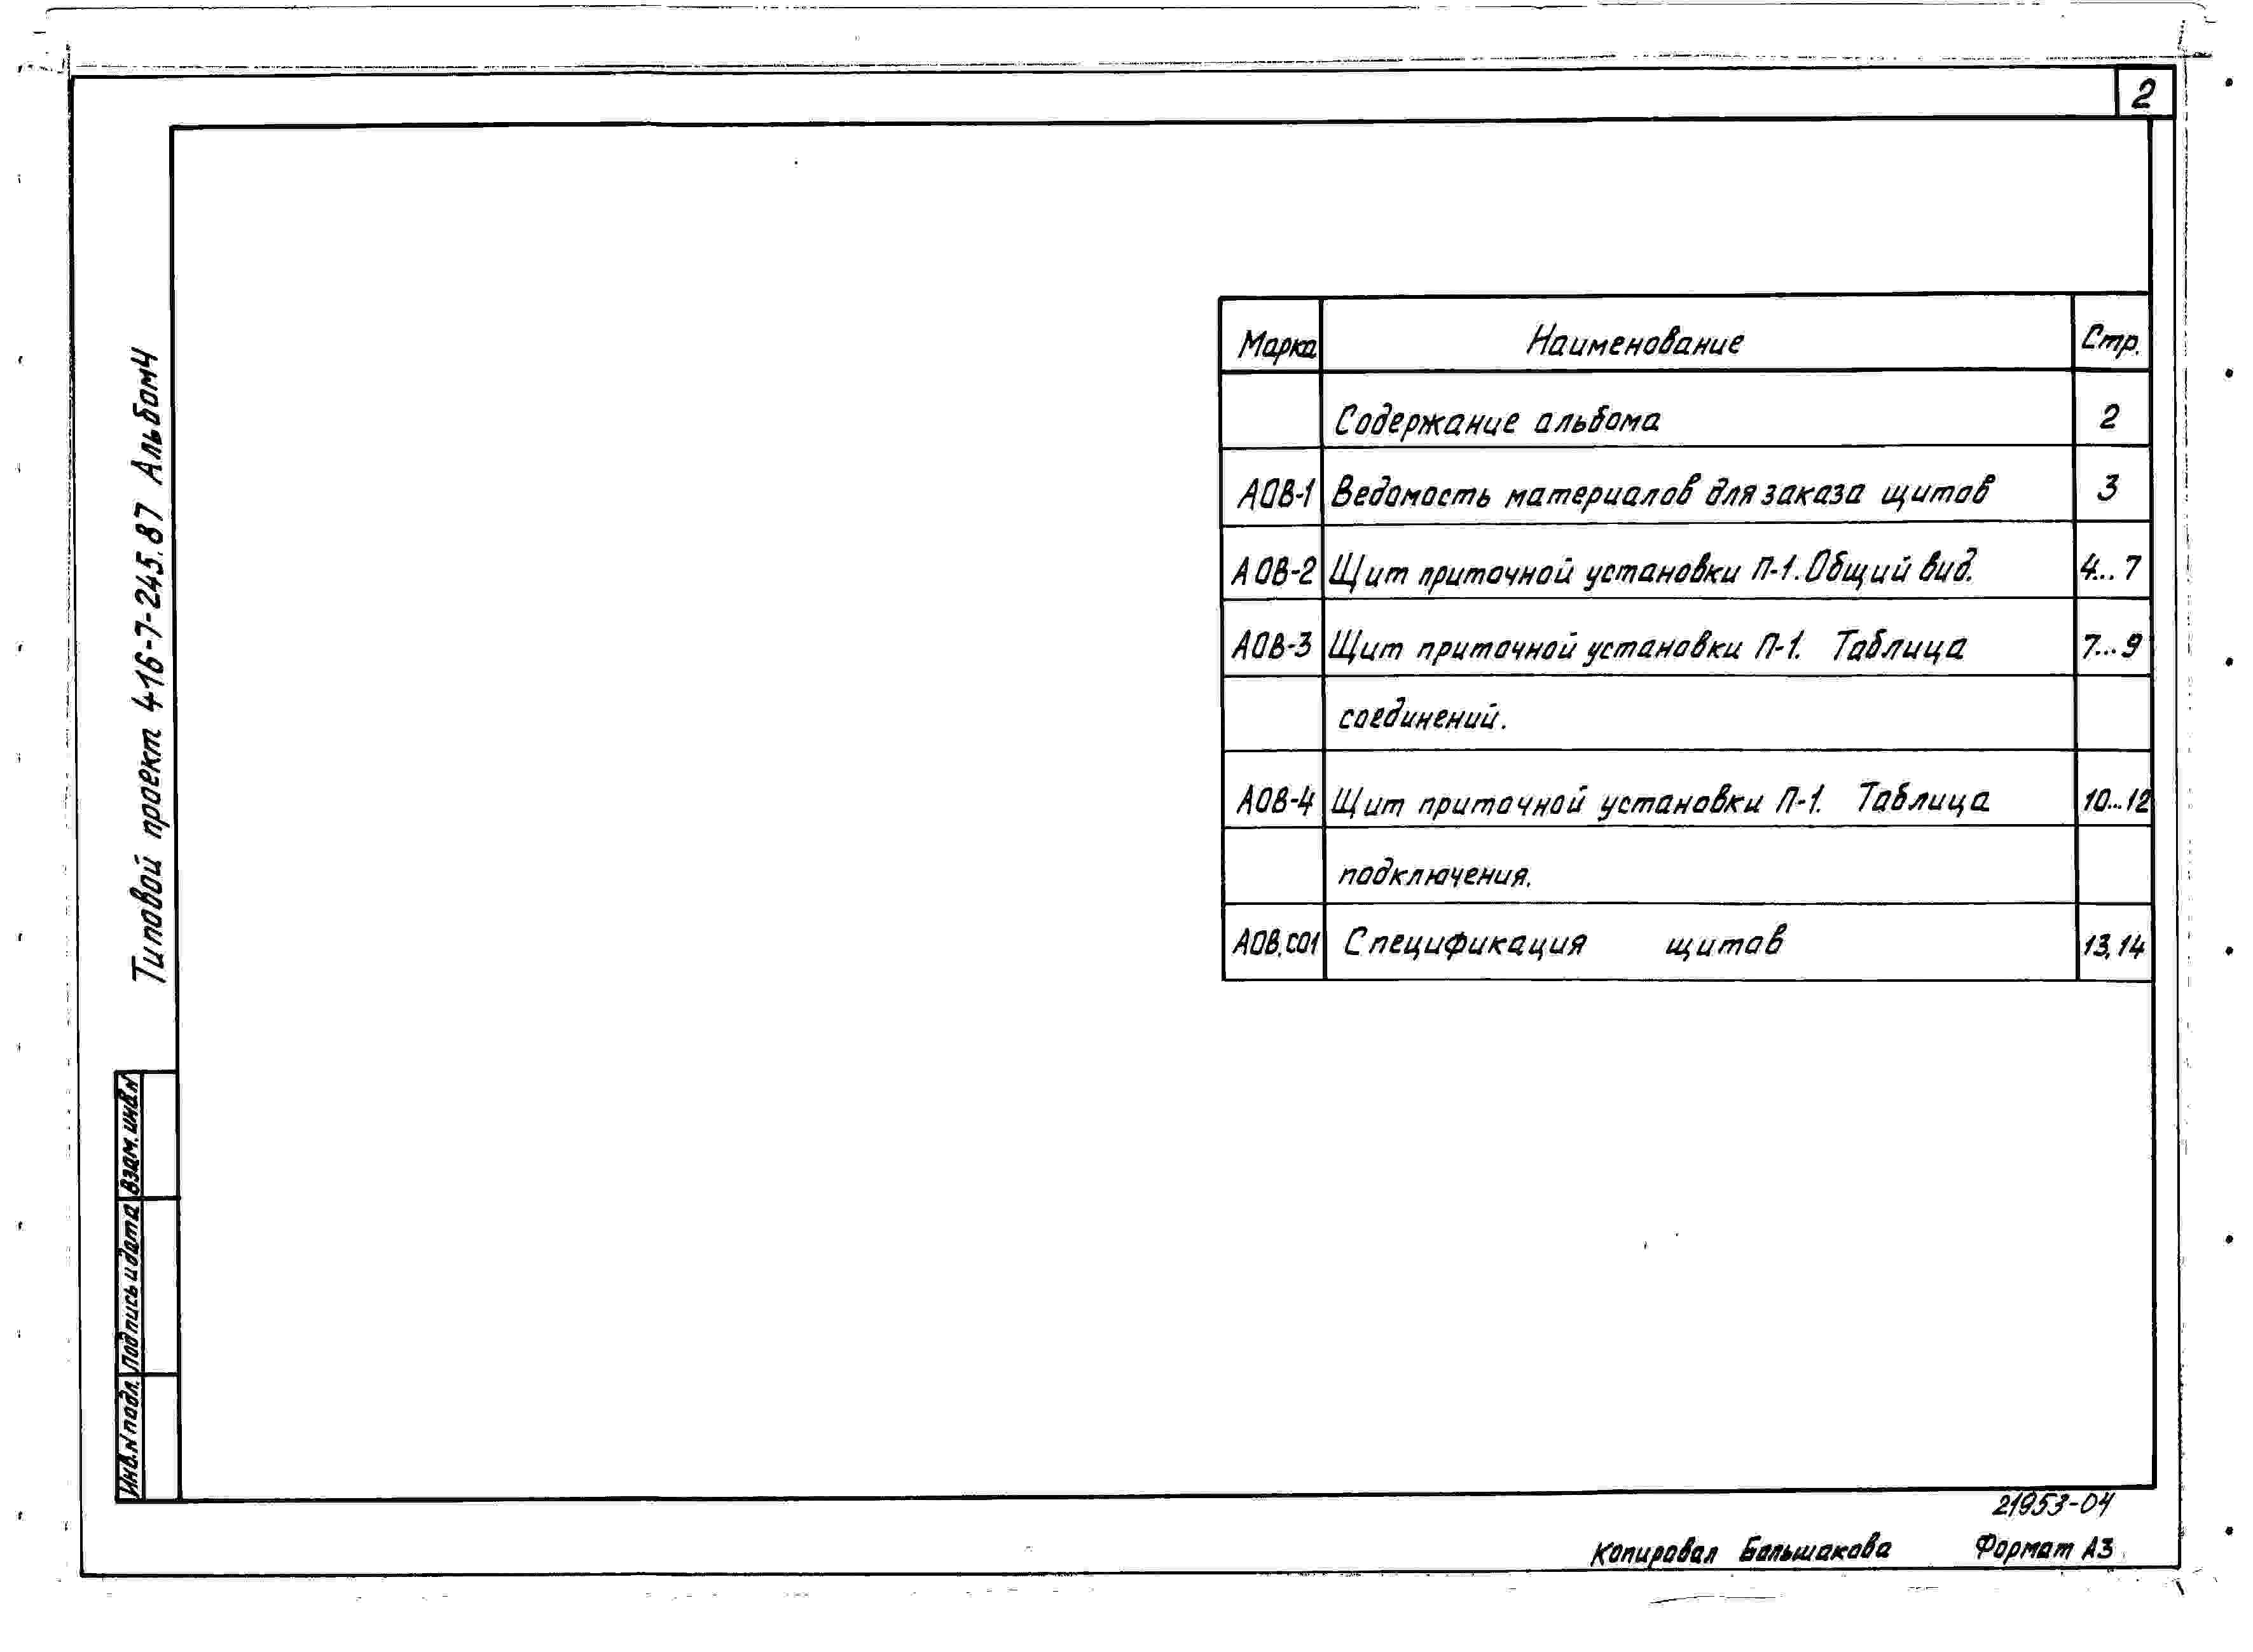 2
Типовой проект 416-7-245.87 Альбом 4
Марка Наименование Стр.
Содержание альбома 2
АОВ-1 Ведомость материалов для заказа щитов 3
АОВ-2 Щит приточной установки П-1. Общий вид. 4...7
АОВ-3 Щит приточной установки П-1. Таблица 7...9
соединений.
АОВ-4 Щит приточной установки П-1. Таблица 10...12
подключения.
АОВ.СО1 Спецификация щитов 13,14
Взам. инв.N
Подпись и дата
Инв.N подл.
21953-04
Копировал Большакова Формат А3